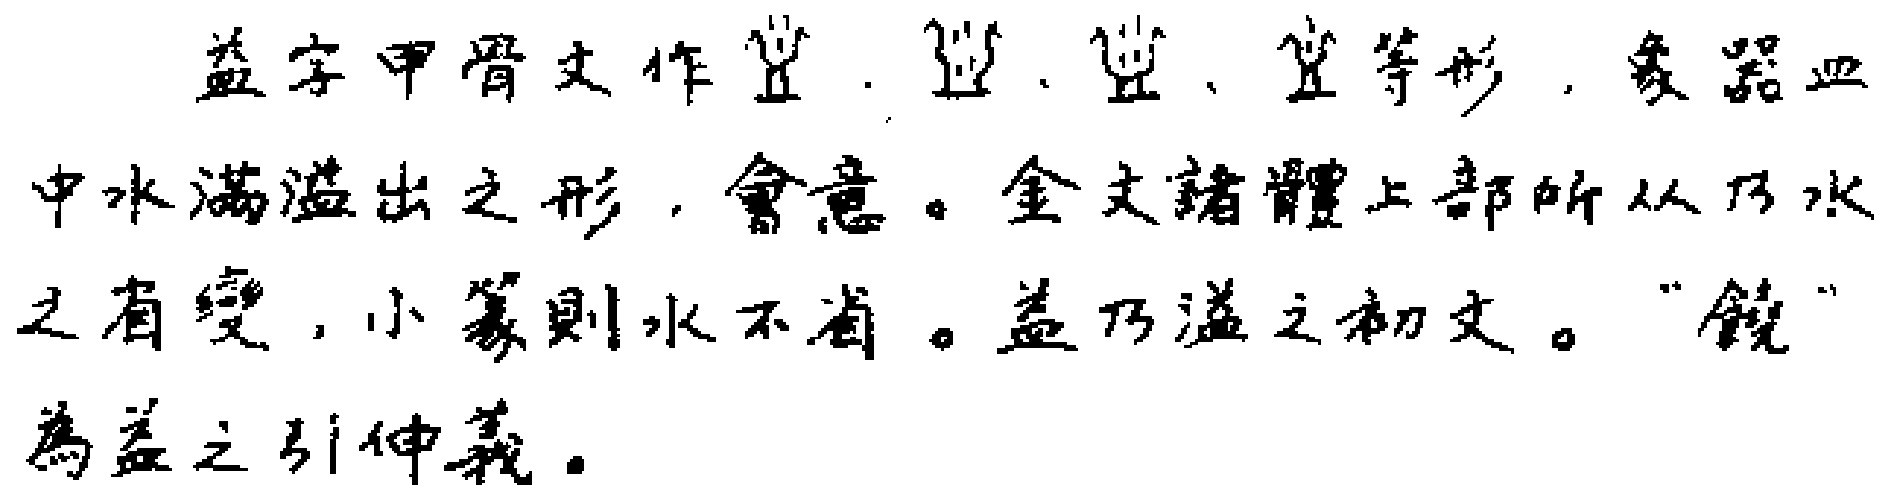 益字甲骨文作、、、等形，象器皿
中水滿溢出之形，會意。金文諸體上部所从乃水
之省變，小篆則水不省。益乃溢之初文。“饒”
為益之引伸義。